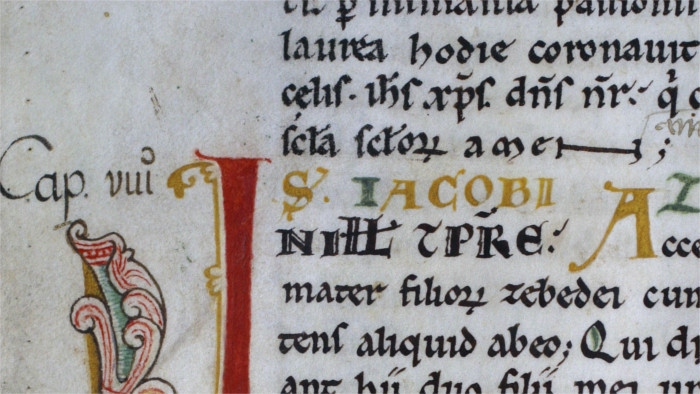 laurea hodie coronauit
celis. ihs̄ xp̄s. dn̄s nr̄. q̇
scl̄a scl̄oꝝ amen;
Cap. viiii
S. IACOBI
IN ILL̄ TPR̄E: Acce
mater filioꝝ zebedei cum
tens aliquid abeo; Qui di
ant hii duo filii mei un